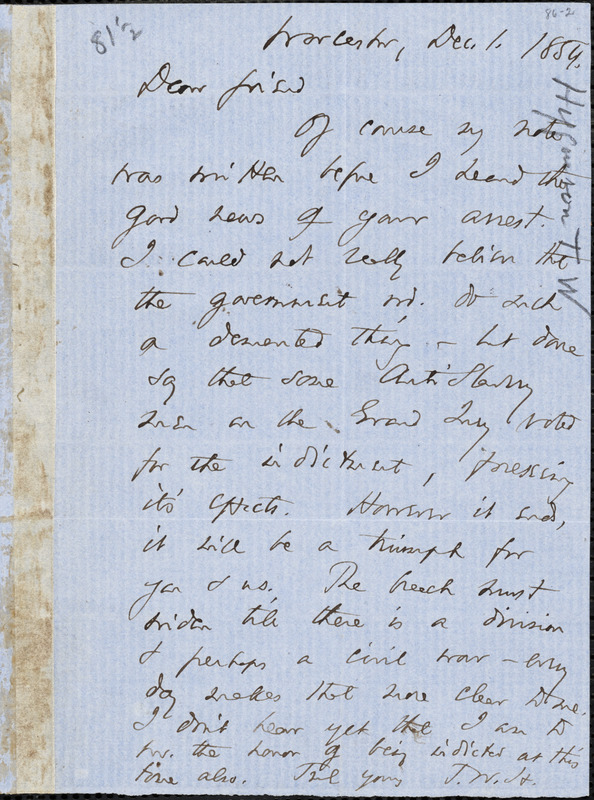 81'2
86-2
Worcester, Dec. 1. 1854.
Dear friend
Of course my note
was written before I heard the
good news of your arrest.
I could not really believe that
the government wd. do such
a demented thing - but
say that some Anti Slavery
men on the Grand Jury voted
for the indictment,
its' effects. However it ends,
it will be a triumph for
you & us. The breach must
widen till there is a division
& perhaps a civil war - every
day makes that more clear to me.
I don't hear yet that I am to
hve. the honor of being indicted at this
time also. yours T.W.H.
Higginson T W